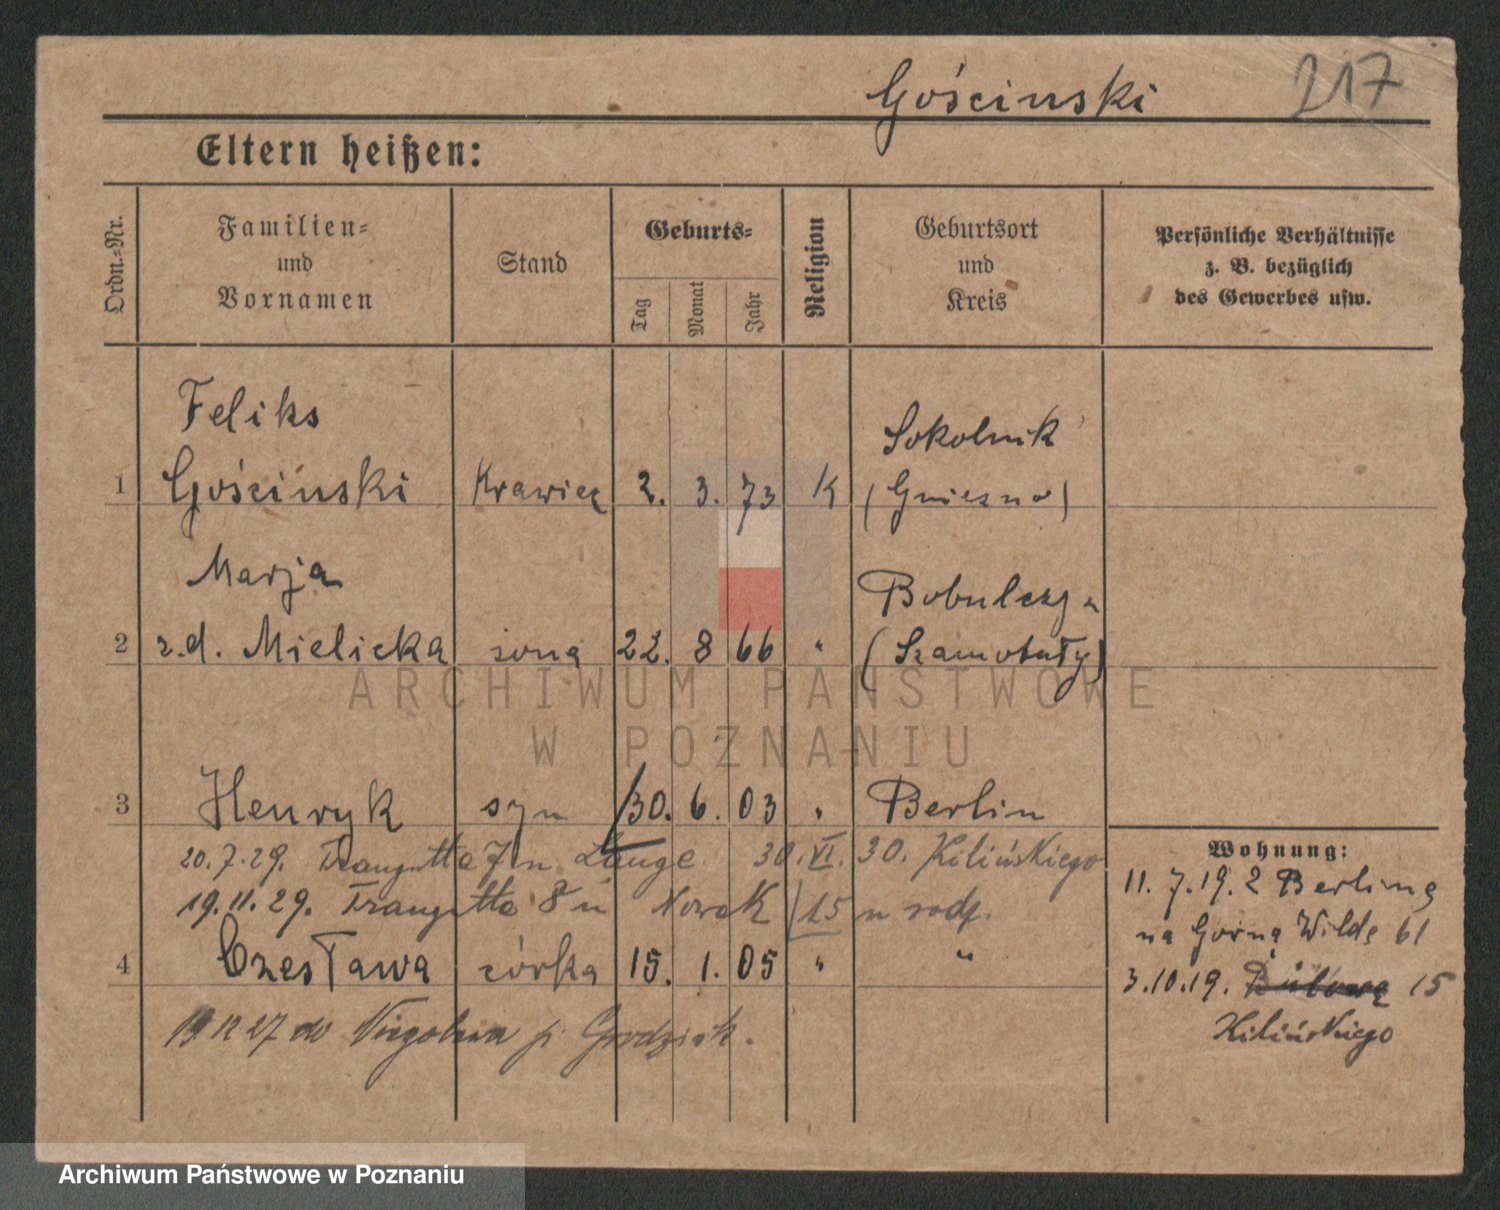 Gościnski 217
Eltern heißen:
Ordn.-Nr.
Familien-
und
Vornamen
Stand
Geburts-
Tag
Monat
Jahr
Religion
Geburtsort
und
Kreis
Persönliche Verhältnisse
z. B. bezüglich
des Gewerbes usw.
Feliks
Sokolnik
1 Gościnski Krawiec 2. 3. 73 K (Gniezno)
Marja
Bobulczyn
2 z.d. Mielicka żona 22. 8 66 " (Szamotuły)
3 Henryk syn 30. 6. 03 " Berlin
20.7.29. Traugutta 7 u Lange 30.VI.30. Kilińskiego
19.11.29. Traugutta 8 u Nowak 15 u rodz.
4 Czesława córka 15. 1. 05 " "
19 12 27 do p. Grodzisk.
Wohnung:
11. 7.19. z Berlina
na Górną Wildę 61
3.10.19. 15
Kilińskiego
ARCHIWUM PAŃSTWOWE
W POZNANIU
Archiwum Państwowe w Poznaniu